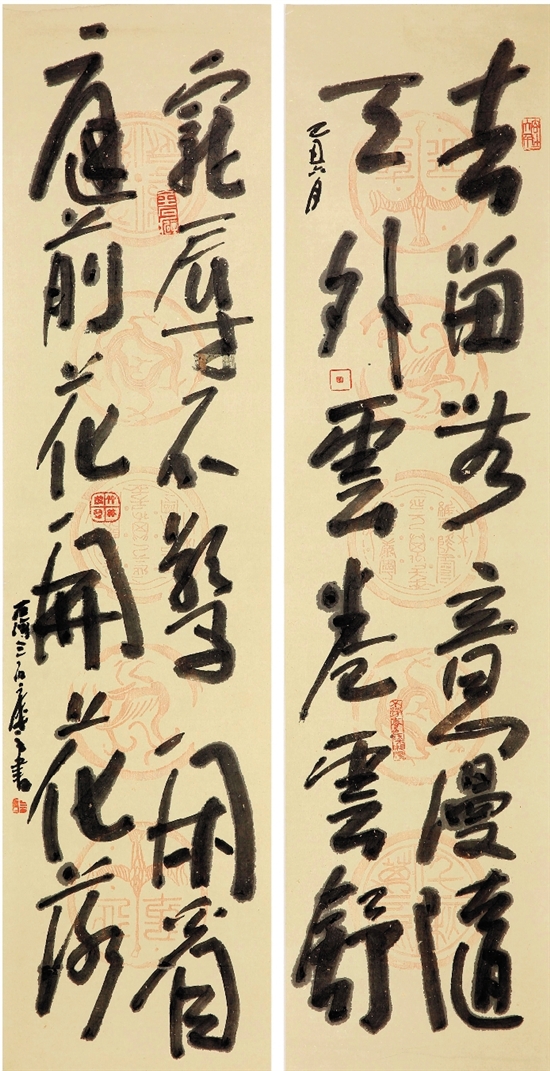 去留無意漫隨
天外雲卷雲舒
丑六月
寵辱不驚閑看
庭前花開花落
書